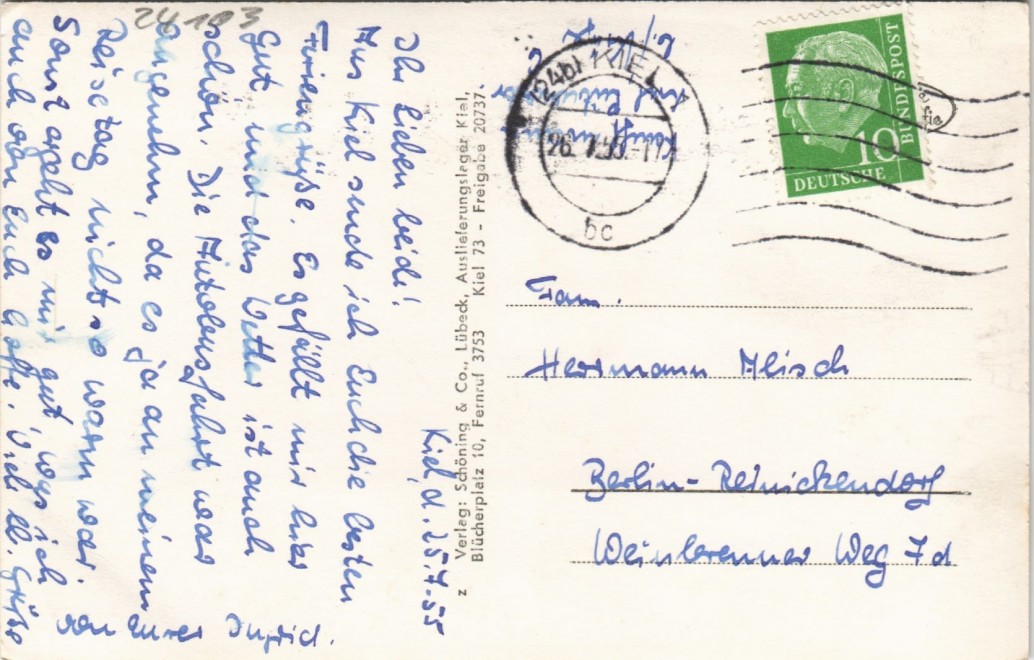 24103
Kiel, d. 25.7.55
Ihr lieben beide!
Aus Kiel sende ich Euch die besten
Feriengrüße. Es gefällt mir hier
gut und das Wetter ist auch
schön. Die Fahrt war
angenehm, da es ja an meinem
Reisetag nicht so warm war.
Sonst geht es mir gut was ich
auch von Euch hoffe. Viel ll. Grüße
von Eurer Ingrid.
z Verlag: Schöning & Co., Lübeck, Auslieferungslager Kiel,
Blücherplatz 10, Fernruf 3753 Kiel 73 - Freigabe 20737
(24b) KIEL
26.7.55.-11
bc
10
DEUTSCHE
BUNDESPOST
Fam.
Herrmann Alisch
Berlin-Reinickendorf
Weinbrenner Weg 7d